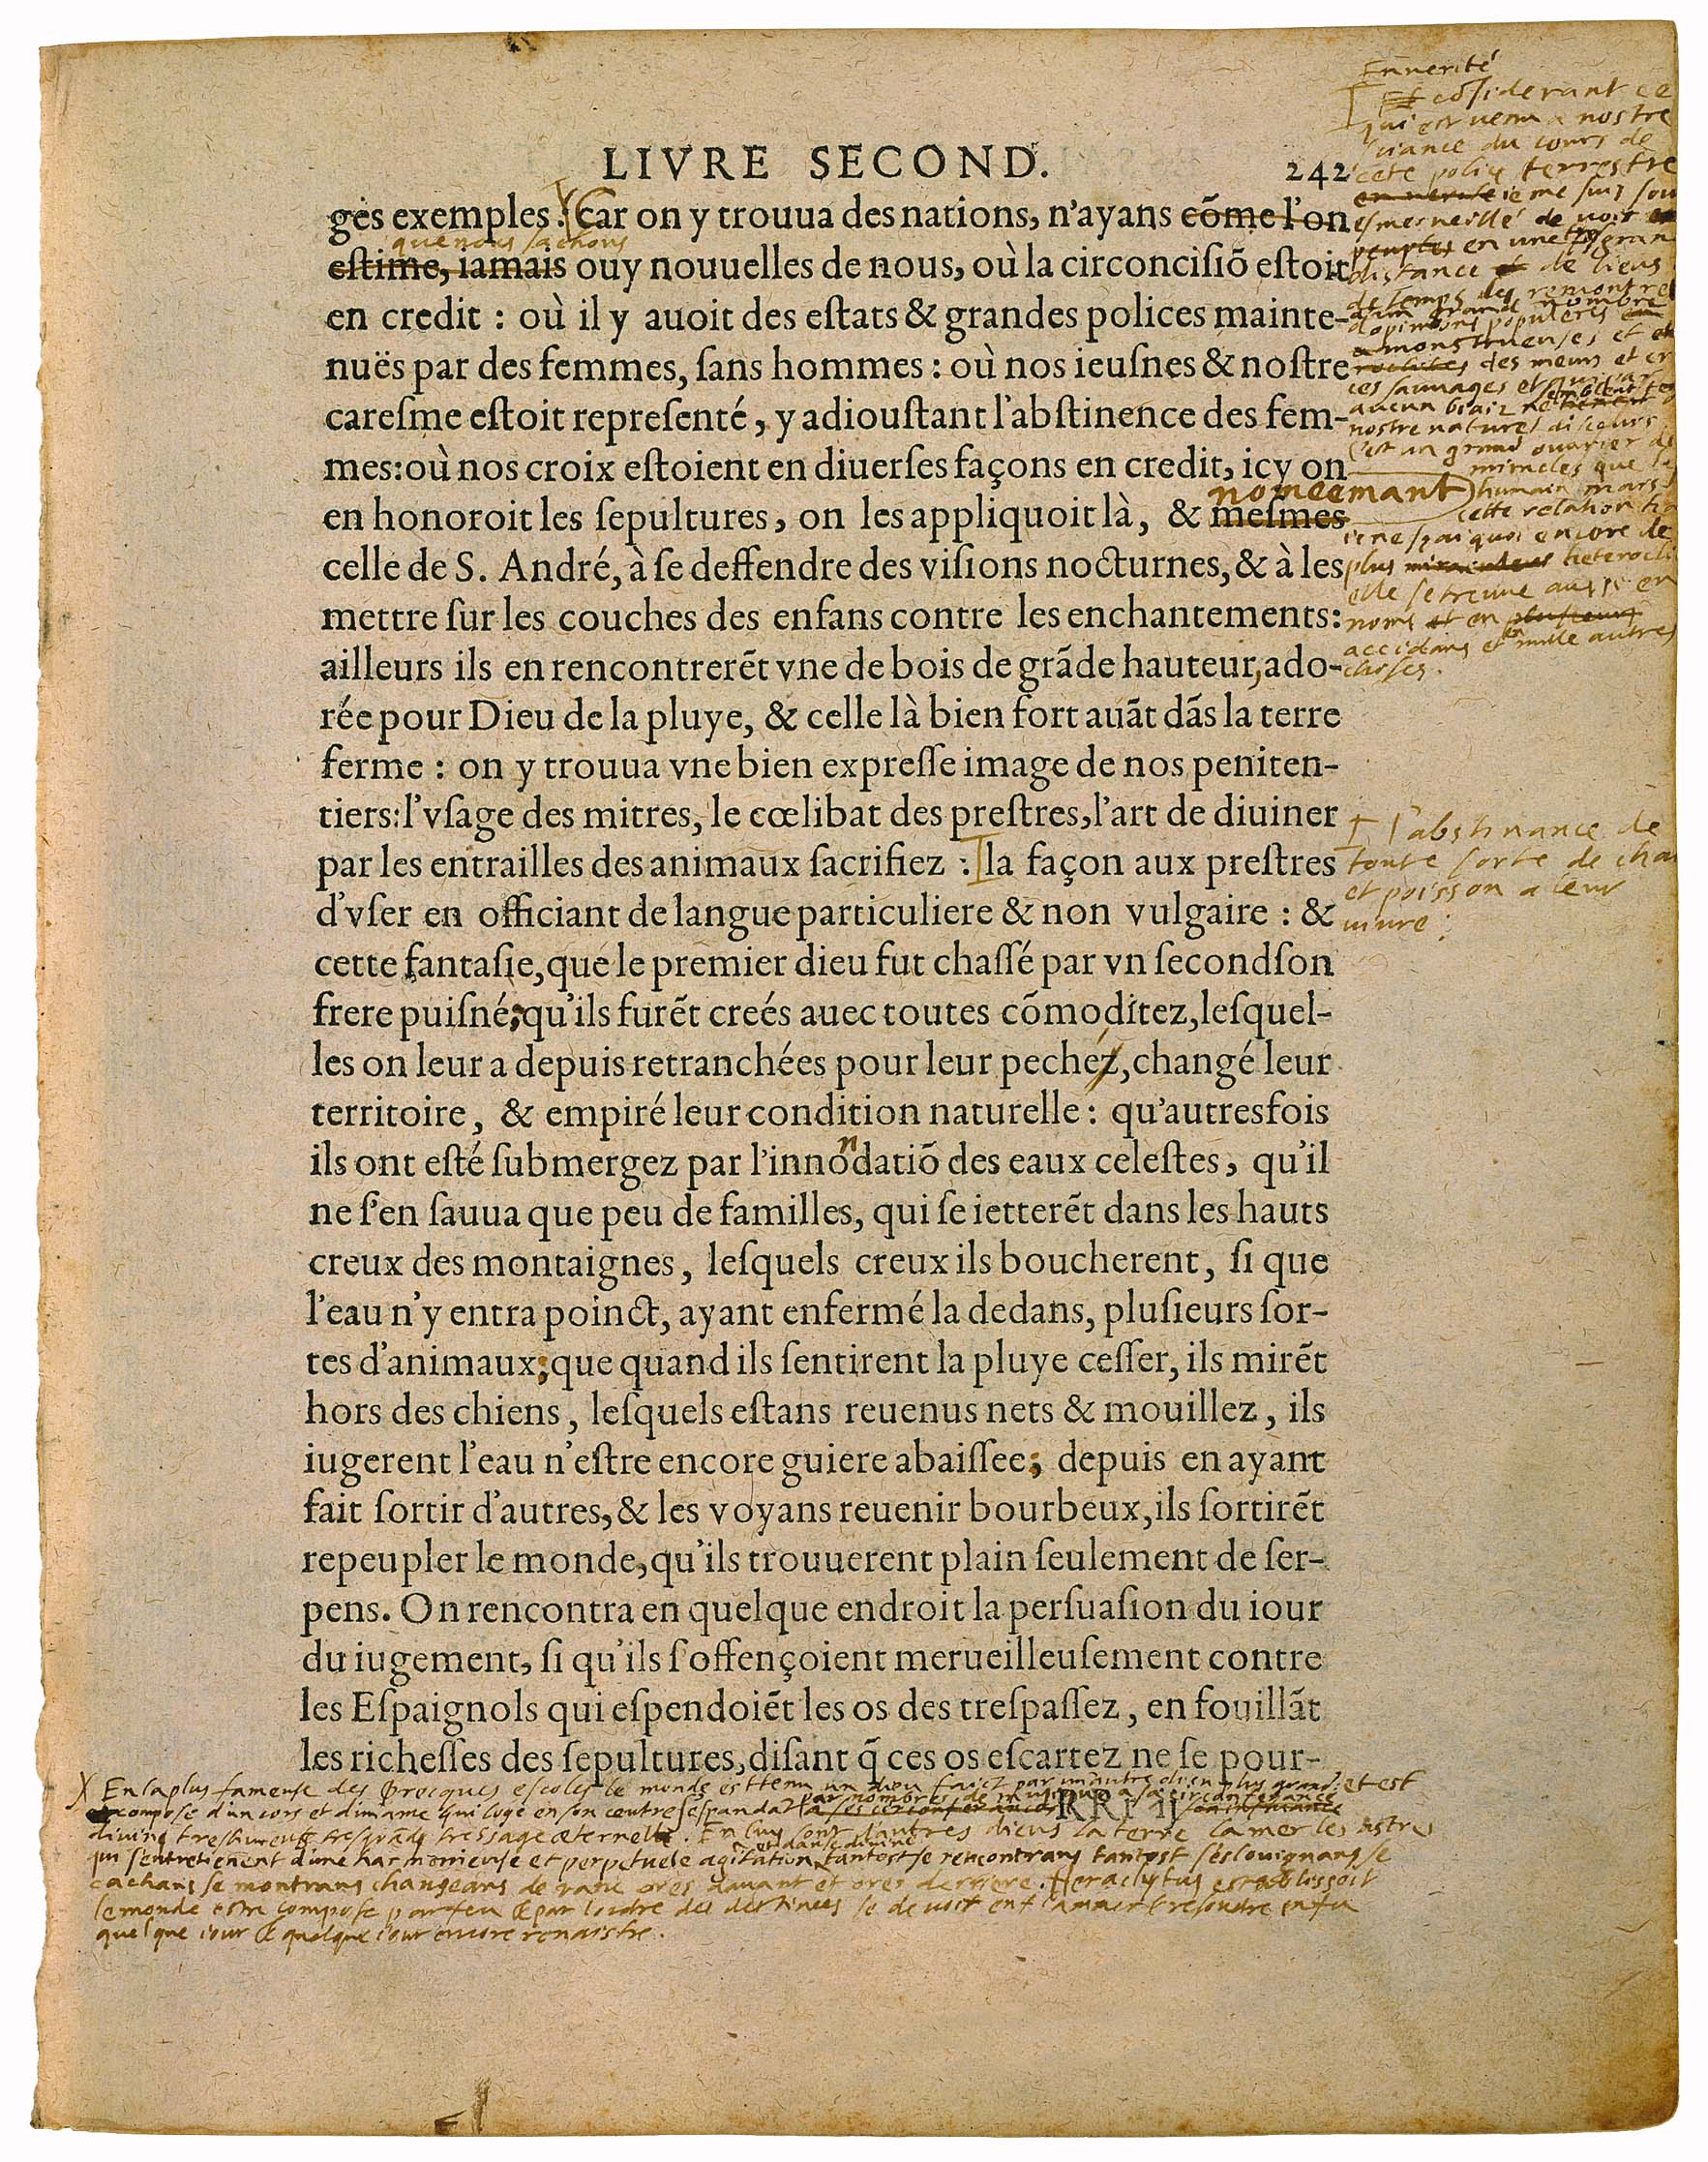 LIVRE SECOND. 242
ges exemples. Car on y trouua des nations, n'ayans cõme l'on
que nous sachons
eſtime, iamais ouy nouuelles de nous, où la circonciſiõ eſtoit
en credit : où il y auoit des eſtats & grandes polices mainte-
nuës par des femmes, ſans hommes : où nos ieuſnes & noſtre
careſme eſtoit repreſenté, y adiouſtant l'abſtinence des fem-
mes: où nos croix eſtoient en diuerſes façons en credit, icy on
nomeemant
en honoroit les ſepultures, on les appliquoit là, & meſmes
celle de S. André, à ſe deffendre des viſions nocturnes, & à les
mettre ſur les couches des enfans contre les enchantements:
ailleurs ils en rencontrerẽt vne de bois de grãde hauteur, ado-
rée pour Dieu de la pluye, & celle là bien fort auãt dãs la terre
ferme : on y trouua vne bien expreſſe image de nos peniten-
tiers: l'vſage des mitres, le cœlibat des preſtres, l'art de diuiner
par les entrailles des animaux ſacrifiez : la façon aux preſtres
d'vſer en officiant de langue particuliere & non vulgaire : &
cette fantaſie, que le premier dieu fut chaſſé par vn ſecond ſon
frere puiſné; qu'ils furẽt creés auec toutes cõmoditez, leſquel-
les on leur a depuis retranchées pour leur pechéz, changé leur
territoire, & empiré leur condition naturelle : qu'autresfois
n
ils ont eſté ſubmergez par l'innodatiõ des eaux celeſtes, qu'il
ne ſ'en ſauua que peu de familles, qui ſe ietterẽt dans les hauts
creux des montaignes, leſquels creux ils boucherent, ſi que
l'eau n'y entra poinct, ayant enfermé la dedans, pluſieurs ſor-
tes d'animaux; que quand ils ſentirent la pluye ceſſer, ils mirẽt
hors des chiens, leſquels eſtans reuenus nets & mouillez, ils
iugerent l'eau n'eſtre encore guiere abaiſſee; depuis en ayant
fait ſortir d'autres, & les voyans reuenir bourbeux, ils ſortirẽt
repeupler le monde, qu'ils trouuerent plain ſeulement de ſer-
pens. On rencontra en quelque endroit la perſuaſion du iour
du iugement, ſi qu'ils ſ'offençoient merueilleuſement contre
les Eſpaignols qui eſpendoiẽt les os des treſpaſſez, en fouillãt
les richeſſes des ſepultures, diſant q̃ ces os eſcartez ne ſe pour-
RRr ij
Enuerité
cõsiderant ce
qui est uenu a nostre
sciance du cours de
cete police terrestre
ie me suis souu
esmerueillé de uoir
en une gran
distance de lieus
de temps des remontre
d'un grand nombre
d'opinions populeres
monstrueuses et
des meurs et
sauuages et
aucun biaiz
nostre naturel discours
C'est un grand ouurier de
miracles que l'e
humain mais
cette relation
ie ne sçai quoi encore de
plus heterocli
elle se treuue aussi en
noms et en
accidans et mille autres
choses.
l'abstinance de
toute sorte de cha
et poisson a leur
uiure :
En la plus fameuse des Grecques escoles le monde est tenu un dieu faict par un autre dieu plus grand et est
compose d'un cors et d'un'ame qui loge en son centre s'espandãt par nombres de musique a sa circonferance
diuine tresheureuse tresgrãde tressage æternelle. En luy sont d'autres dieus la terre la mer les astres
et danse diuine
qui s'entretienent d'une harmonieuse et perpetuele agitation tantost se rencontrans tantost s'eslouignans se
cachans se montrans changeans de ranc ores dauant et ores derriere. Heraclytus establissoit
le monde estre compose par feu & par l'ordre des destinees se deuoir enflammer & resoudre en feu
quelque iour & quelque iour encore renaistre.